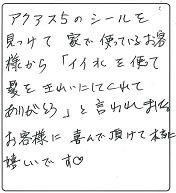 アクアス5のシールを
見つけて 家で使っているお客
様から「イイ水を使って
髪をキレイにしてくれて
ありがとう」と言われます。
お客様に喜んで頂けて本当に
嬉しいです♡